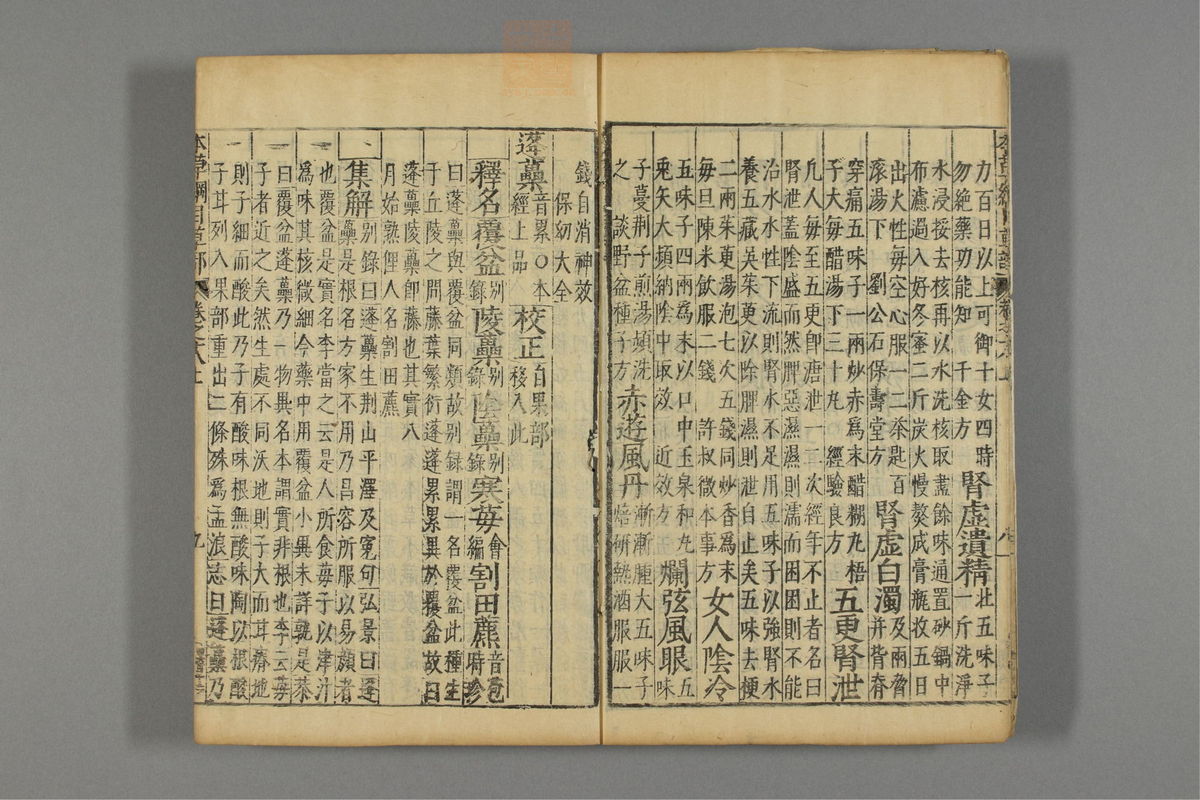 力百日以上可御十女四時
勿絶藥功能知 千金方 腎虛遺精 北五味子
水浸挼去核再以水洗核取盡餘味通置砂鍋中
布濾過入好冬蜜二斤炭火慢熬成膏瓶收五日
出火性每空心服一二茶匙百
滚湯下 劉公石保壽堂方 腎虛白濁 及兩脅
并背脊
穿痛五味子一兩炒赤爲末醋糊丸梧
子大每醋湯下三十丸 經驗良方 五更腎泄
凡人每至五更即溏泄一二次經年不止者名曰
腎泄蓋陰盛而然脾惡濕濕則濡而困困則不能
治水水性下流則腎水不足用五味子以強腎水
養五藏吳茱萸以除脾濕則泄自止矣五味去梗
二兩茱萸湯泡七次五錢同炒香爲末
每旦陳米飲服二錢 許叔微本事方 女人陰冷
五味子四兩爲末以口中玉泉和丸
兎矢大頻納陰中取效 近效方 爛弦風眼 五味
子蔓荆子煎湯頻洗
之 談野翁種子方 赤遊風丹 漸漸腫大五味子
焙研熱酒服一
錢自消神效
保幼大全
蓬蘽 音累○本
經上品 校正 自果部
移入此
釋名 覆盆 别錄 陵蘽 别錄 陰蘽 别錄 寒莓 會編 割田藨 音苞時珍
曰蓬蘽與覆盆同類故别録謂一名覆盆此種生
于丘陵之間藤葉繁衍蓬蓬累累異於覆盆故曰
蓬蘽陵蘽即藤也其實八
月始熟俚人名割田藨
集解 别錄曰蓬蘽生荆山平澤及寃句弘景曰蓬
蘽是根名方家不用乃昌容所服以易顔者
也覆盆是實名李當之云是人所食莓子以津汁
爲味其核微細今藥中用覆盆小異未詳孰是恭
曰覆盆蓬蘽乃一物異名本謂實非根也李云莓
子者近之矣然生處不同沃地則子大而甘瘠地
則子細而酸此乃子有酸味根無酸味陶以根酸
子甘列入果部重出二條殊爲孟浪志曰蓬蘽乃